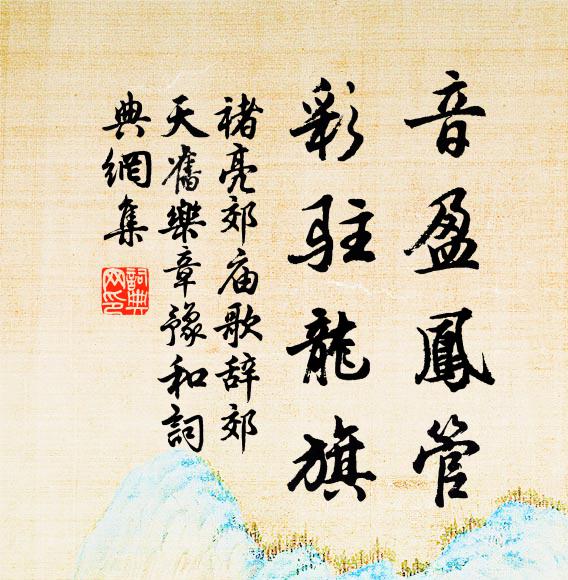 音盈鳳管
彩駐龍旗
褚亮郊庙歌辞郊
天舊樂章豫和詞
典網集
詞典
网印